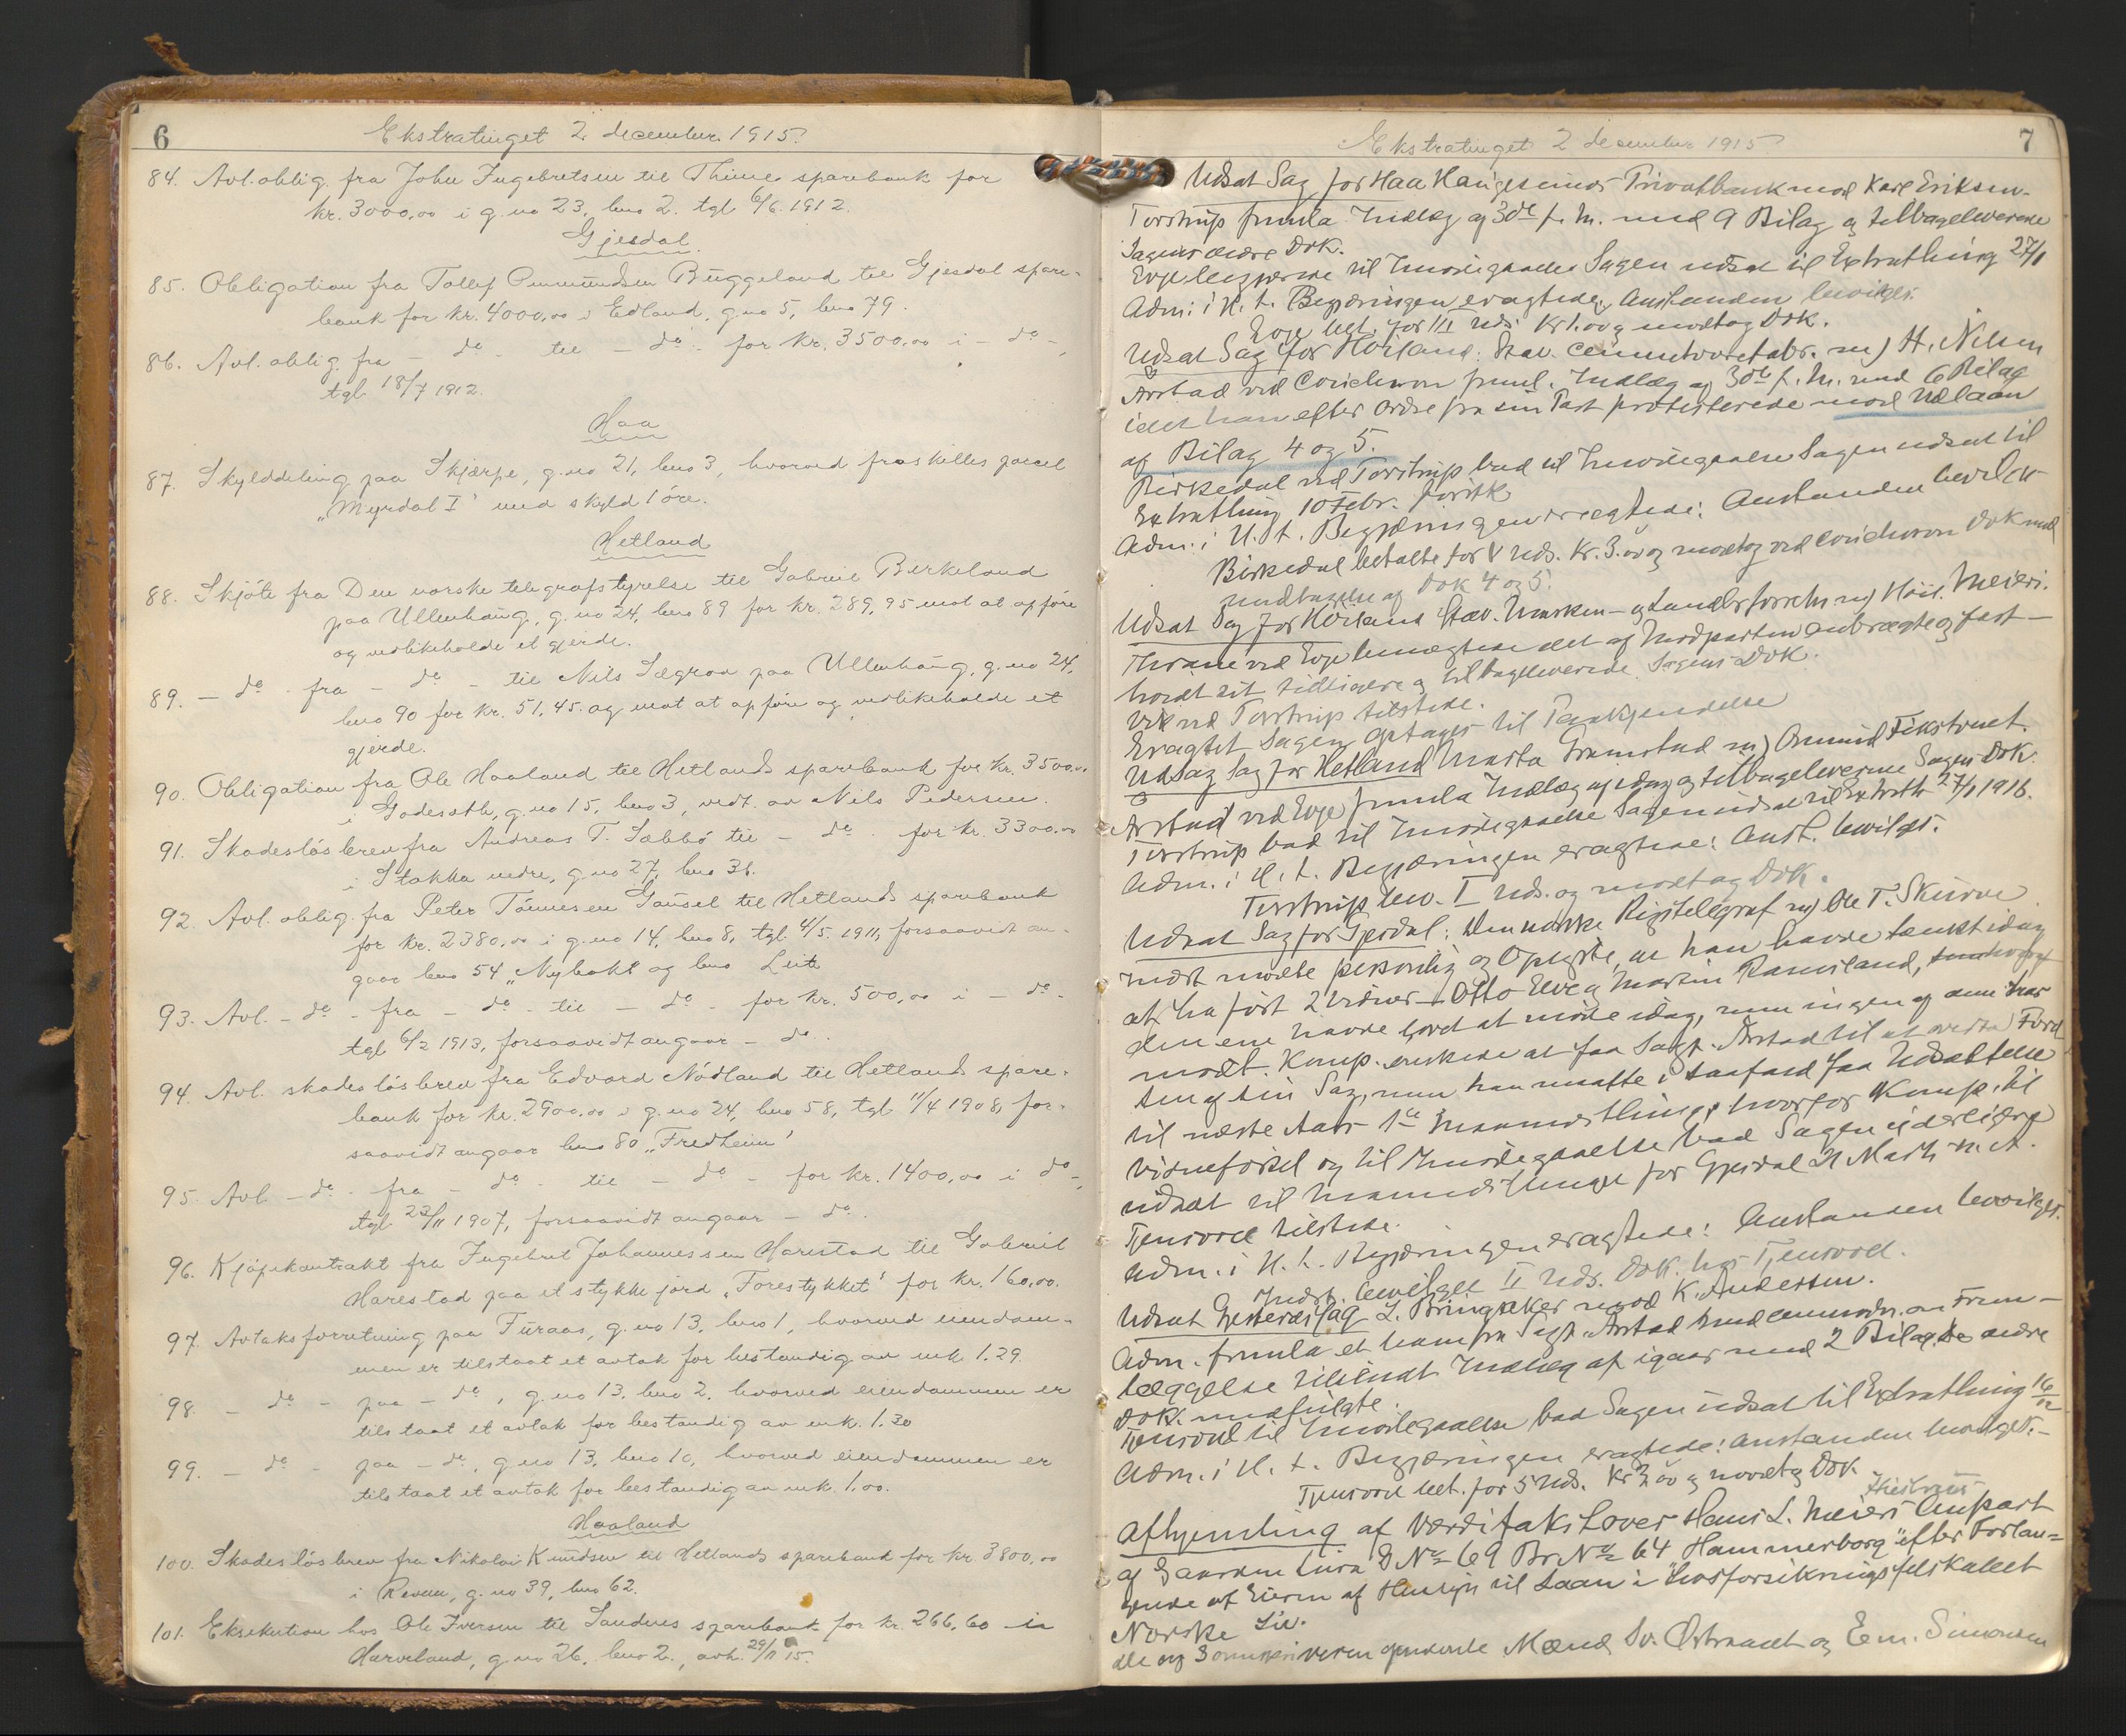 6
Ekstratinget 2. december 1915.
84. Avl. oblig. fra John Ingebretsen til Thime sparebank for
kr. 3000,00 i g. no 23, bno 2. tgl 6/6 1912.
Gjesdal.
85. Obligation fra Tollef Aanundsen Byggeland til Gjesdal spare-
bank for kr. 4000,00 i Edland, g. no 5, bno 79.
86. Avl. oblig. fra - do - til - do - for kr. 3500,00 i - do -,
tgl 18/7 1912.
Haa
87. Skylddeling paa Skjærpe, g. no 21, bno 3, hvorved fraskilles parcel
„Myrdal I" med skyld 1 öre.
Hetland
88. Skjöte fra Den norske telegrafstyrelse til Gabriel Berkeland
paa Ullenhaug, g. no 24, bno 89 for kr. 289,95 mot at opföre
og vedlikeholde et gjerde.
89. - do - fra - do - til Nils Sægrov paa Ullenhaug, g. no 24,
bno 90 for kr. 51,45 og mot at opföre og vedlikeholde et
gjerde.
90. Obligation fra Ole Haaland til Hetlands sparebank for kr. 3500,00
i Godeseth, g. no 15, bno 3, vedt. av Nils Pedersen.
91. Skadeslösbrev fra Andreas T. Sæbbö til - do - for kr. 3300,00
i Stokka nedre, g. no 27, bno 36.
92. Avl. oblig. fra Peter Tönnesen Gausel til Hetlands sparebank
for kr. 2380,00 i g. no 14, bno 8, tgl. 4/5 1911, forsaavidt an-
gaar bno 54 „Nybakk og bno Leite
93. Avl. - do - fra - do - til - do - for kr. 500,00 i - do -
tgl 6/2 1913, forsaavidt angaar - do -.
94. Avl. skadeslösbrev fra Edvard Nödland til Hetlands spare-
bank for kr. 2900,00 i g. no 24, bno 58, tgl 11/4 1908, for-
saavidt angaar bno 80 „Fredheim"
95. Avl. - do - fra - do - til - do - for kr. 1400,00 i do -,
tgl 23/11 1907, forsaavidt angaar - do -.
96. Kjöpekontrakt fra Ingebret Johannessen Harestad til Gabriel
Harestad paa et stykke jord „Forestykket" for kr. 160,00.
97. Avtaksforretning paa Furaas, g. no 13, bno 1, hvorved eiendom-
men er tilstaat et avtak for bestandig av mk. 1.29.
98. - do - paa - do -, g. no 13, bno 2, hvorved eiendommen er
tilstaat et avtak for bestandig av mk. 1.30
99. - do - paa - do -, g. no 13, bno 10, hvorved eiendommen er
tilstaat et avtak for bestandig av mk. 1.00.
Haaland
100. Skadeslösbrev fra Nikolai Knudsen til Hetlands sparebank for kr. 3800,00
i Reveim, g. no 39, bno 62.
101. Eksekution hos Ole Iversen til Sandnes sparebank for kr. 266,60 i
Harveland, g. no 26, bno 2, avh. 29/11 15.
7
Ekstratinget 2 december 1915
Udsat Sag for Haa Haugesunds Privatbank mod Karl Eriksen.
Torstrup fremla Indlæg af 30de f. M. med 9 Bilag og tilbageleverede
Sagens andre Dok.
Evje begjærede til Imödegaaelse Sagen udsat til Extrathing 27/1
Adm. i H. t. Begjæringen eragtede: Anstanden bevilges.
Evje bet. for III Uds. Kr 1.00 og modtog Dok.
Udsat Sag for Höiland: Stav. Cementvarefabr. m) H. Nilsen
Årstad ved Corichwon freml. Indlæg af 30de f. M. med 6 Bilag
idet han efter ordre fra sin Part protesterede mod Udlaan
af Bilag 4 og 5.
Birkedal ved Torstrup bad til Imödegaaelse Sagen udsat til
Extrathing 10 Febr.
Adm. i H. t. Begjæringen eragtede: Anstanden bevilges
Birkedal betalte for V Uds. Kr. 3.00 og modtog ved Corichwon Dok med
undtagelse af Dok 4 og 5.
Udsat Sag for Höiland Stav. Smörken- og Landbr.forretn. m) Höil. Meieri.
Thrane ved Evje benægtede det af Modparten anbragte og fast-
holdt sit tidligere og tilbageleverede Sagens Dok.
Vik ved Torstrup tilstede.
Eragtet Sagen optages til Paakjendelse
Udsat Sag for Hetland Marta Grimstad m) Omund Fikstveit.
Årstad ved Evje fremla Indlæg af idag og tilbageleverede Sagens Dok.
Torstrup bad til Imödegaaelse Sagen udsat til Extrath 27/1 1916.
Adm. i H. t. Begjæringen eragtede: Anst. bevilges.
Torstrup bev. I Uds. og modtog Dok.
Udsat Sag for Gjesdal: Den norske Rigstelegraf m) Ole T. Skurve
Indst mödte personlig og oplyste, at han havde tænkt idag
at ha fört 2 Vidner - Otto Elve og Martin Ramsland,
den ene havde lovet at möde idag, men ingen af dem har
mödt. Komp. önskede at faa Sagf. Årstad til at
ten af sin Sag, men han maatte i saafald faa Udsættelse
til næste Aars 1ste Maanedsthing, hvorfor Komp. til
Vidneförsel og til Imödegaaelse bad Sagen yderligere
udsat til Maanedsthinget for Gjesdal 21 Marts n. A.
Tjensvold tilstede.
Adm. i H. t. Begjæringen eragtede: Anstanden bevilges.
Indst. bevilget II Uds. Dok. hos Tjensvold.
Udsat Gjesteretssag L. Bringaker mod K. Andersen.
Adm. fremla et ham fra Sagf. Årstad med anmodn. om Frem-
læggelse tilsendt Indlæg af igaar med 2 Bilag. De andre
Dok. medfulgte.
Tjensvold til Imödegaaelse bad Sagen udsat til Extrathing 16/12
Adm. i H. t. Begjæringen eragtede: Anstanden bevilges.-
Tjensvold bet. for 5 Uds. Kr 3,00 og modtog Dok.
Afhjemling af Værditakst over Hans L. Meiers Anpart
af Gaarden Lura G No 69 Br No 64 „Hammersborg" efter Forlan-
gende af Eieren af Hensyn til Laan i Livsforsikringsselskabet
Norske Liv.
De opnævnte Mænd Sv. Östraadt og Em. Simonsen